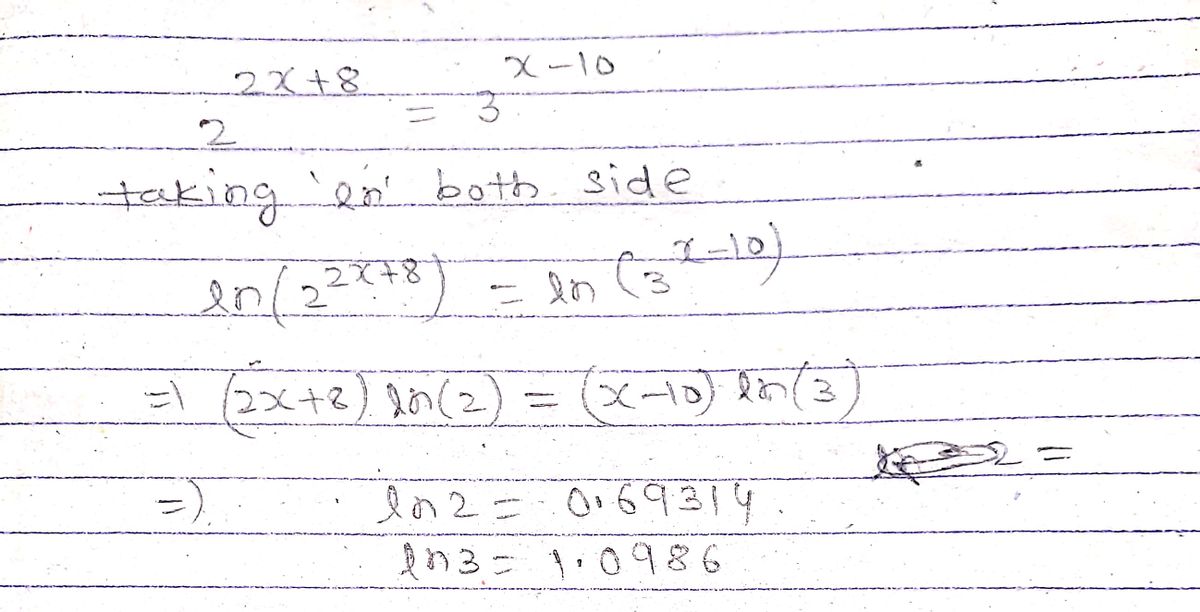 2^{2x+8} = 3^{x-10}
taking 'ln' both side
ln(2^{2x+8}) = ln(3^{x-10})
=) (2x+8) ln(2) = (x-10) ln(3)
2 =
=) ln2 = 0.69314.
ln3 = 1.0986